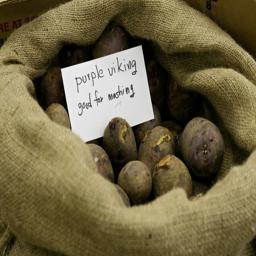 purple viking
good for mashing